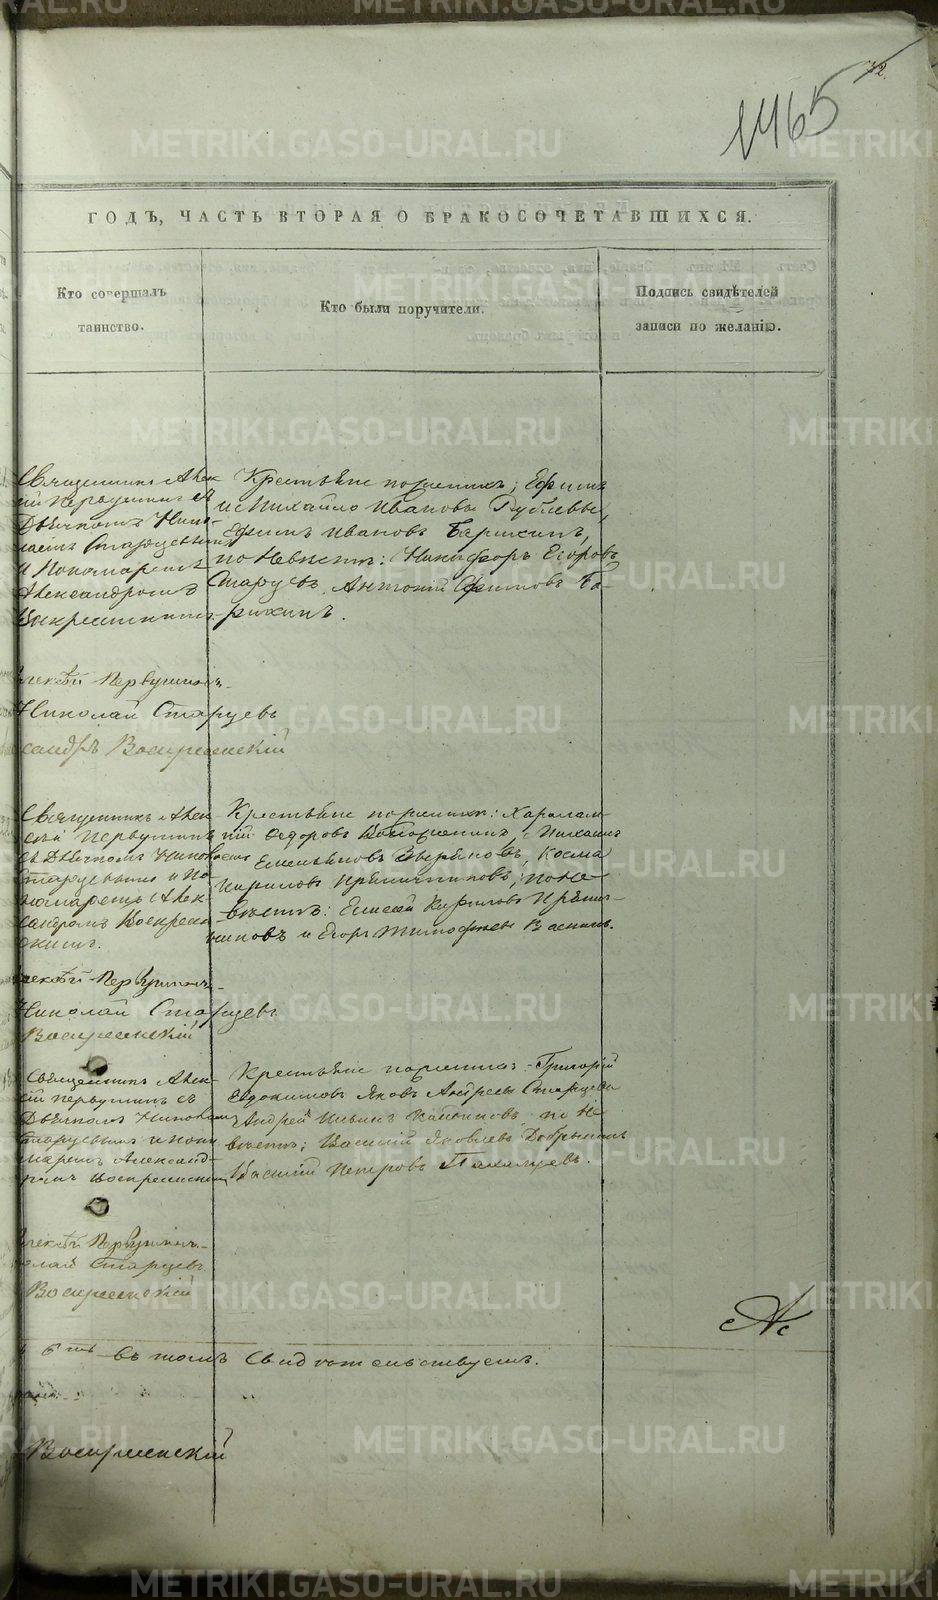 72.
1465
ГОДЪ, ЧАСТЬ ВТОРАЯ О БРАКОСОЧЕТАВШИХСЯ.
Кто совершалъ
таинство.
Кто были поручители.
Подпись свидѣтелей
записи по желанію.
Священникъ Алек
сѣй Первушинъ съ
Дьячкомъ Нико-
лаемъ Старцевымъ
и Пономаремъ
Александромъ
Воскресенскимъ.
Крестьяне по женихѣ; Ефимъ
и Михайло Ивановы Рублевы,
Ефимъ Ивановъ Барыкинъ,
по Невѣстѣ: Никифоръ Егоровъ
Старцевъ, Антоній Ефимовъ Ба-
рыкинъ.
Алексѣй Первушинъ.
Николай Старцевъ
Воскресенскій
Священникъ Алек
сѣй Первушинъ
съ Дьячкомъ Николаемъ
Старцевымъ и По
номаремъ Алек-
сандромъ Воскресен
скимъ.
Крестьяне по женихѣ: Харалам-
пій Ѳедоровъ Михаилъ
Емельяновъ Козма
Кириловъ по Не
вѣстѣ: Елисей Кириловъ
и Егоръ Тимофѣевъ
Алексѣй Первушинъ.
Николай Старцевъ
Воскресенскій
Священникъ Алек-
сѣй Первушинъ съ
Дьячкомъ Николаемъ
Старцевымъ и Поно
маремъ Александ-
ромъ Воскресенскимъ
Крестьяне по женихѣ - Григорій
Евдокимовъ Яковъ Андреевы Старцевы
Андрей Ильинъ по Не
вѣстѣ; Василій Яковлевъ Добрынинъ
Василій Петровъ
Алексѣй Первушинъ.
Николай Старцевъ.
Воскресенскій
въ томъ свидѣтельствуемъ.
Воскресенскій
METRIKI.GASO-URAL.RU